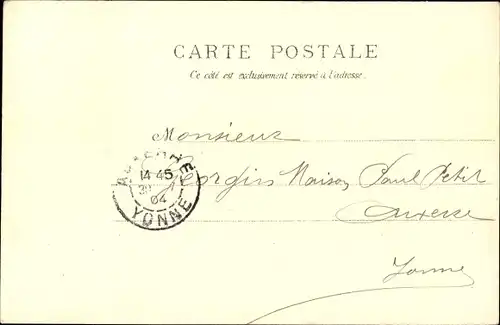 CARTE POSTALE
Ce côté est exclusivement réservé à l'adresse.
Monsieur
Maison Paul Petit
Auxerre
Yonne
14 45
04
YONNE